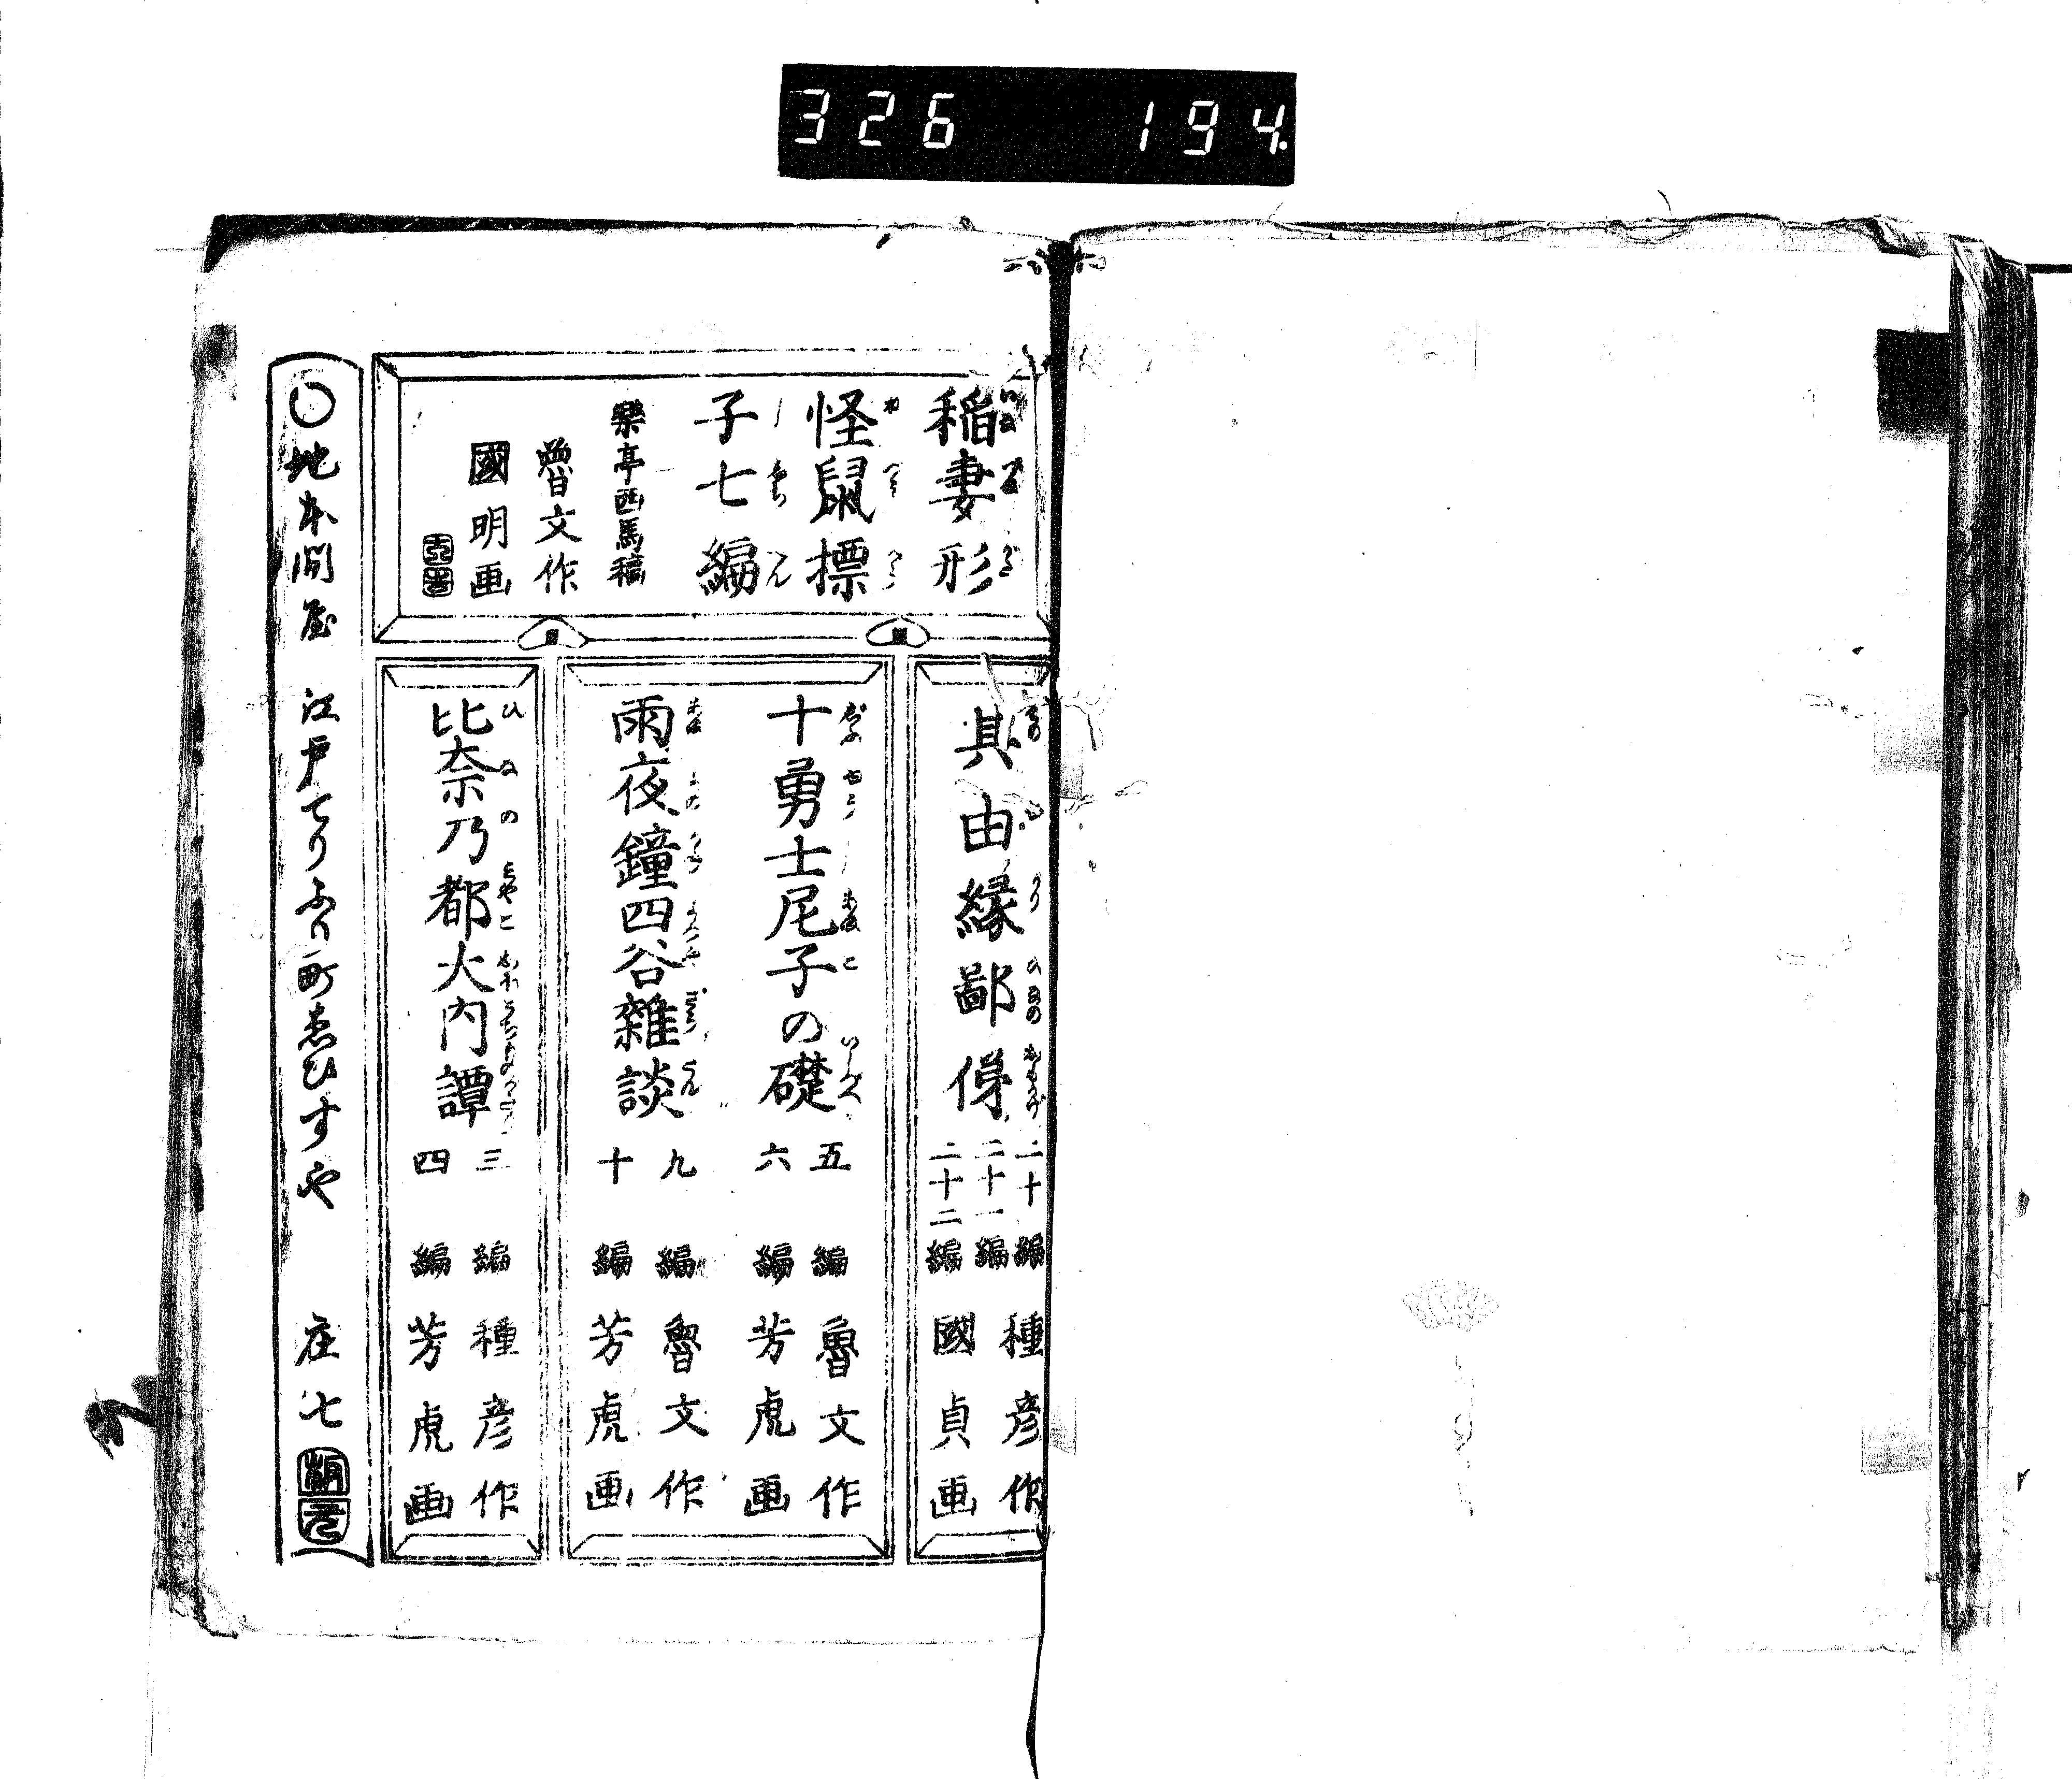 326 194
稲妻形
怪鼠標
子七編
樂亭西馬稿
魯文作
國明画
其由縁鄙俤
二十編
二十一編
二十二編
種彦作
國貞画
十勇士尼子の礎
五編
六編
魯文作
芳虎画
雨夜鐘四谷雜談
九編
十編
魯文作
芳虎画
比奈乃都大内譚
三編
四編
種彦作
芳虎画
〇地本問屋 江戸てりふり町ゑひすや 庄七